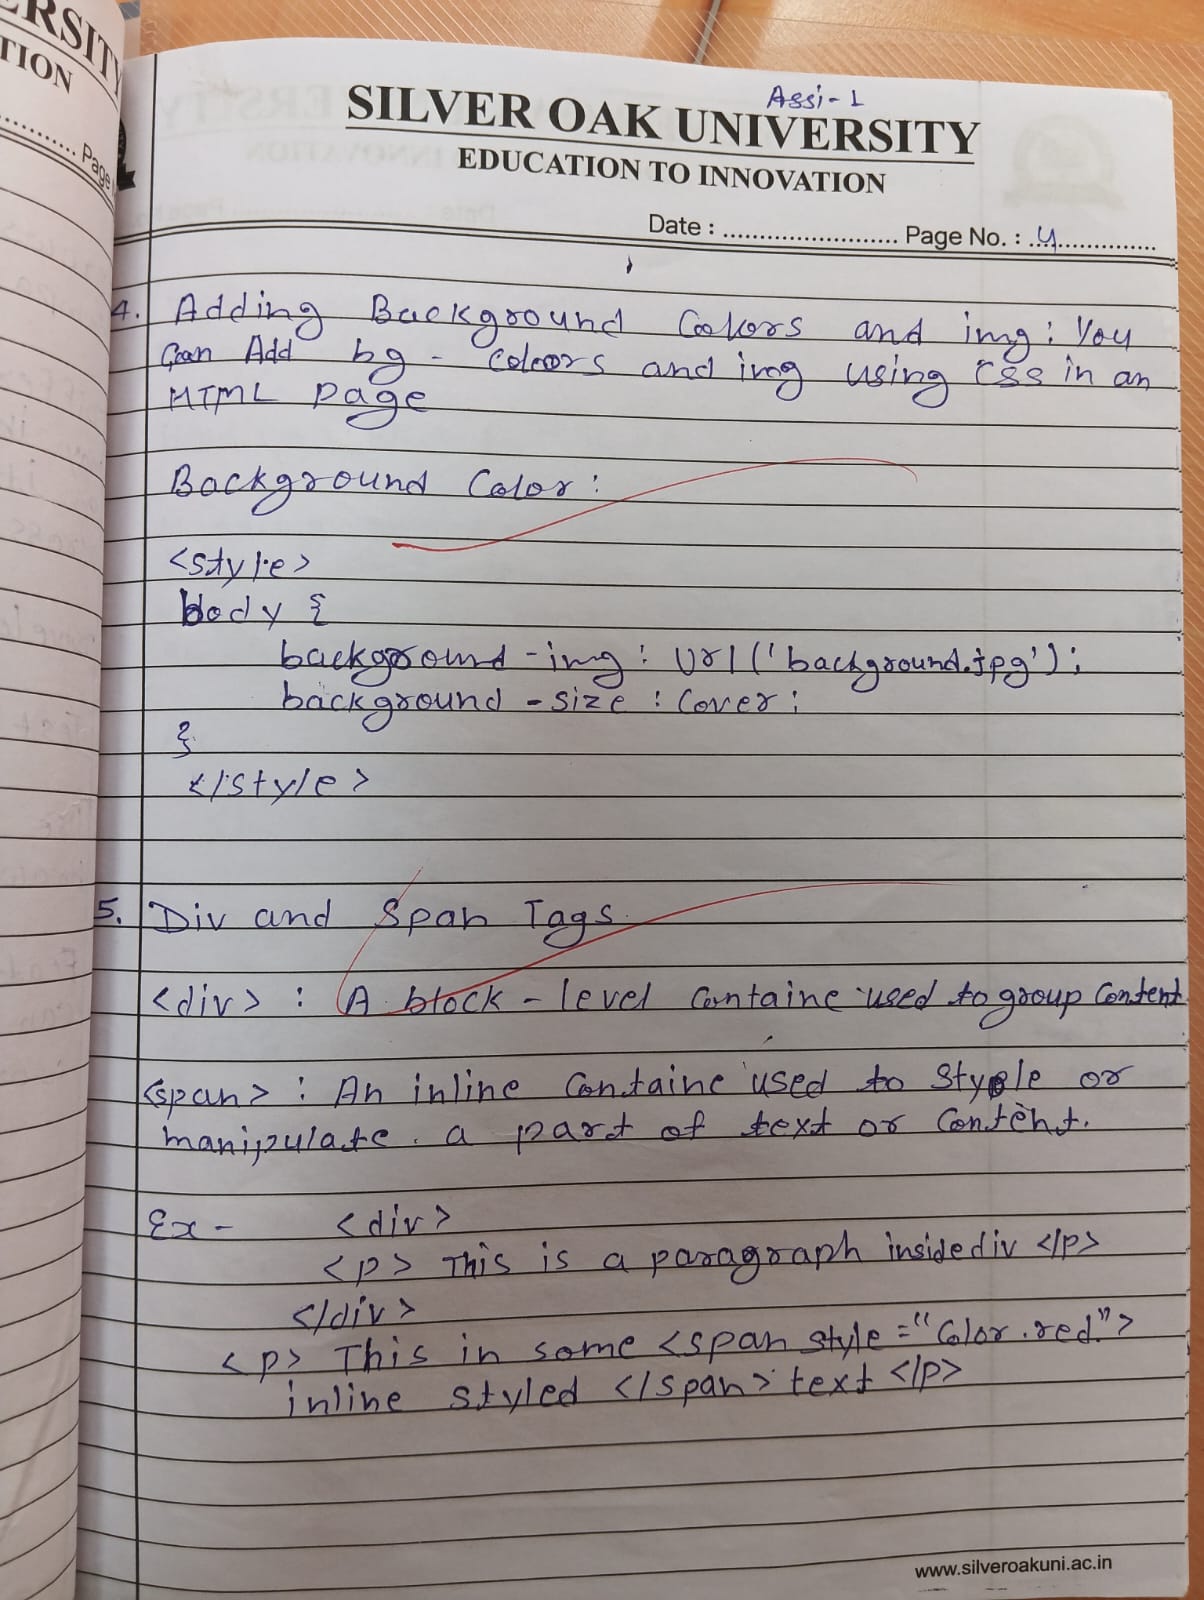 ERSITY
TION
Page
Assi-1
SILVER OAK UNIVERSITY
EDUCATION TO INNOVATION
Date : ........................ Page No. : .4..............
4. Adding Background Colors and img : You
Can Add bg - Colors and img using CSS in an
HTML page
Background Color :
<style>
body {
background-img : url('background.jpg');
background-size : Cover;
}
</style>
5. Div and Span Tags
<div> : A block-level Containe used to group Content
<span> : An inline Containe used to style or
manipulate. a part of text or Content.
Ex - <div>
<p> This is a paragraph inside div </p>
</div>
<p> This in some <span style="Color.red.">
inline styled </span> text </p>
www.silveroakuni.ac.in